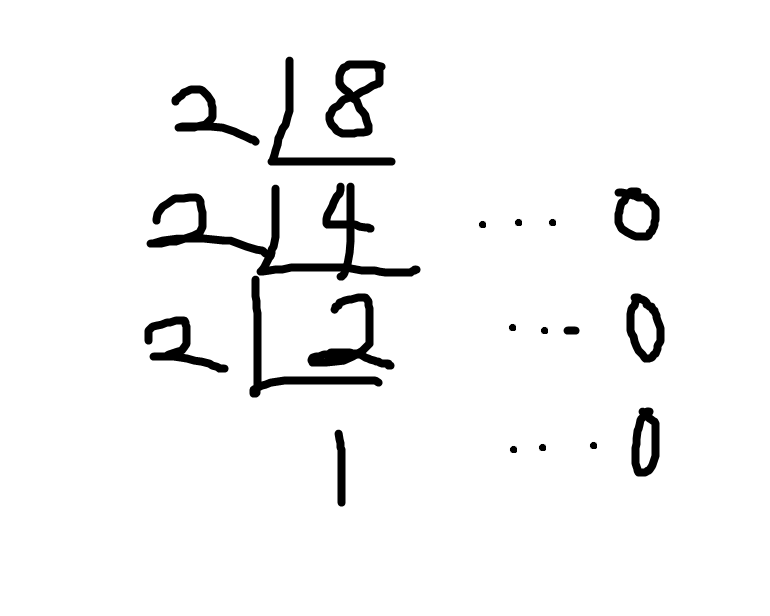 2 8
2 4 ... 0
2 2 ... 0
1 ... 0